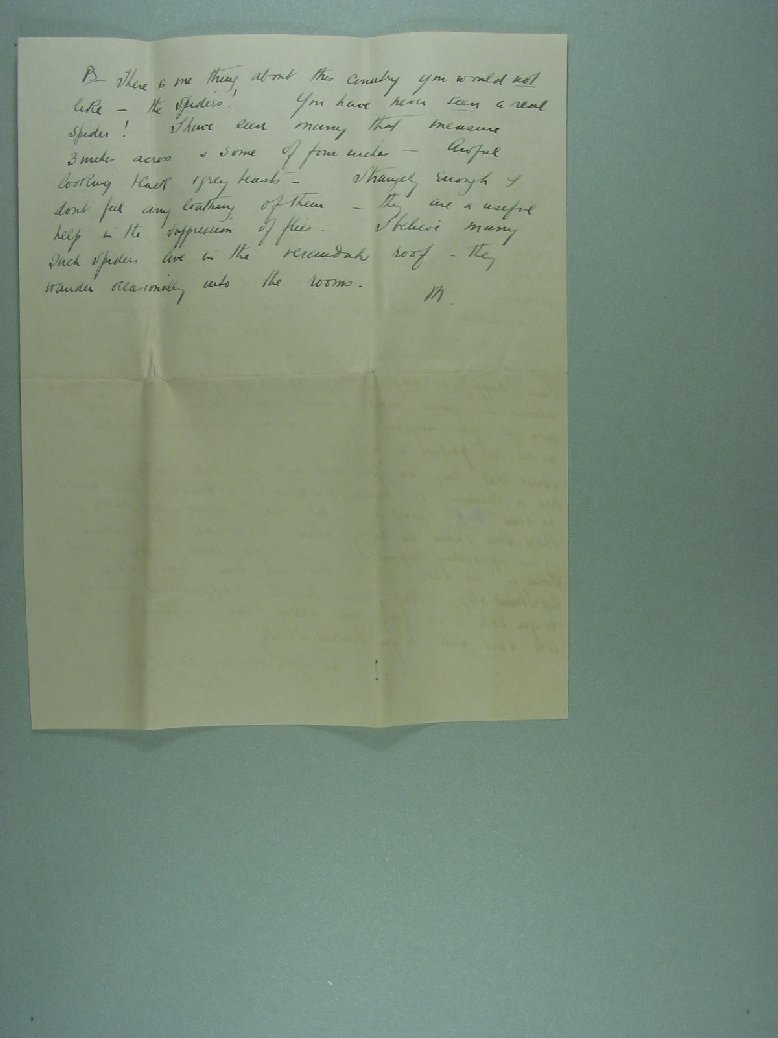 PS There is one thing about this country you would not
like – the spiders! You have never seen a real
spider! I have seen many that measure
3 inches across & some of four inches – Awful
looking black & grey beasts – Strangely enough I
dont feel any loathing of them – they are a useful
help in the suppression of flies. I believe many
such spiders live in the verandah roof – they
wander occasionally into the rooms.